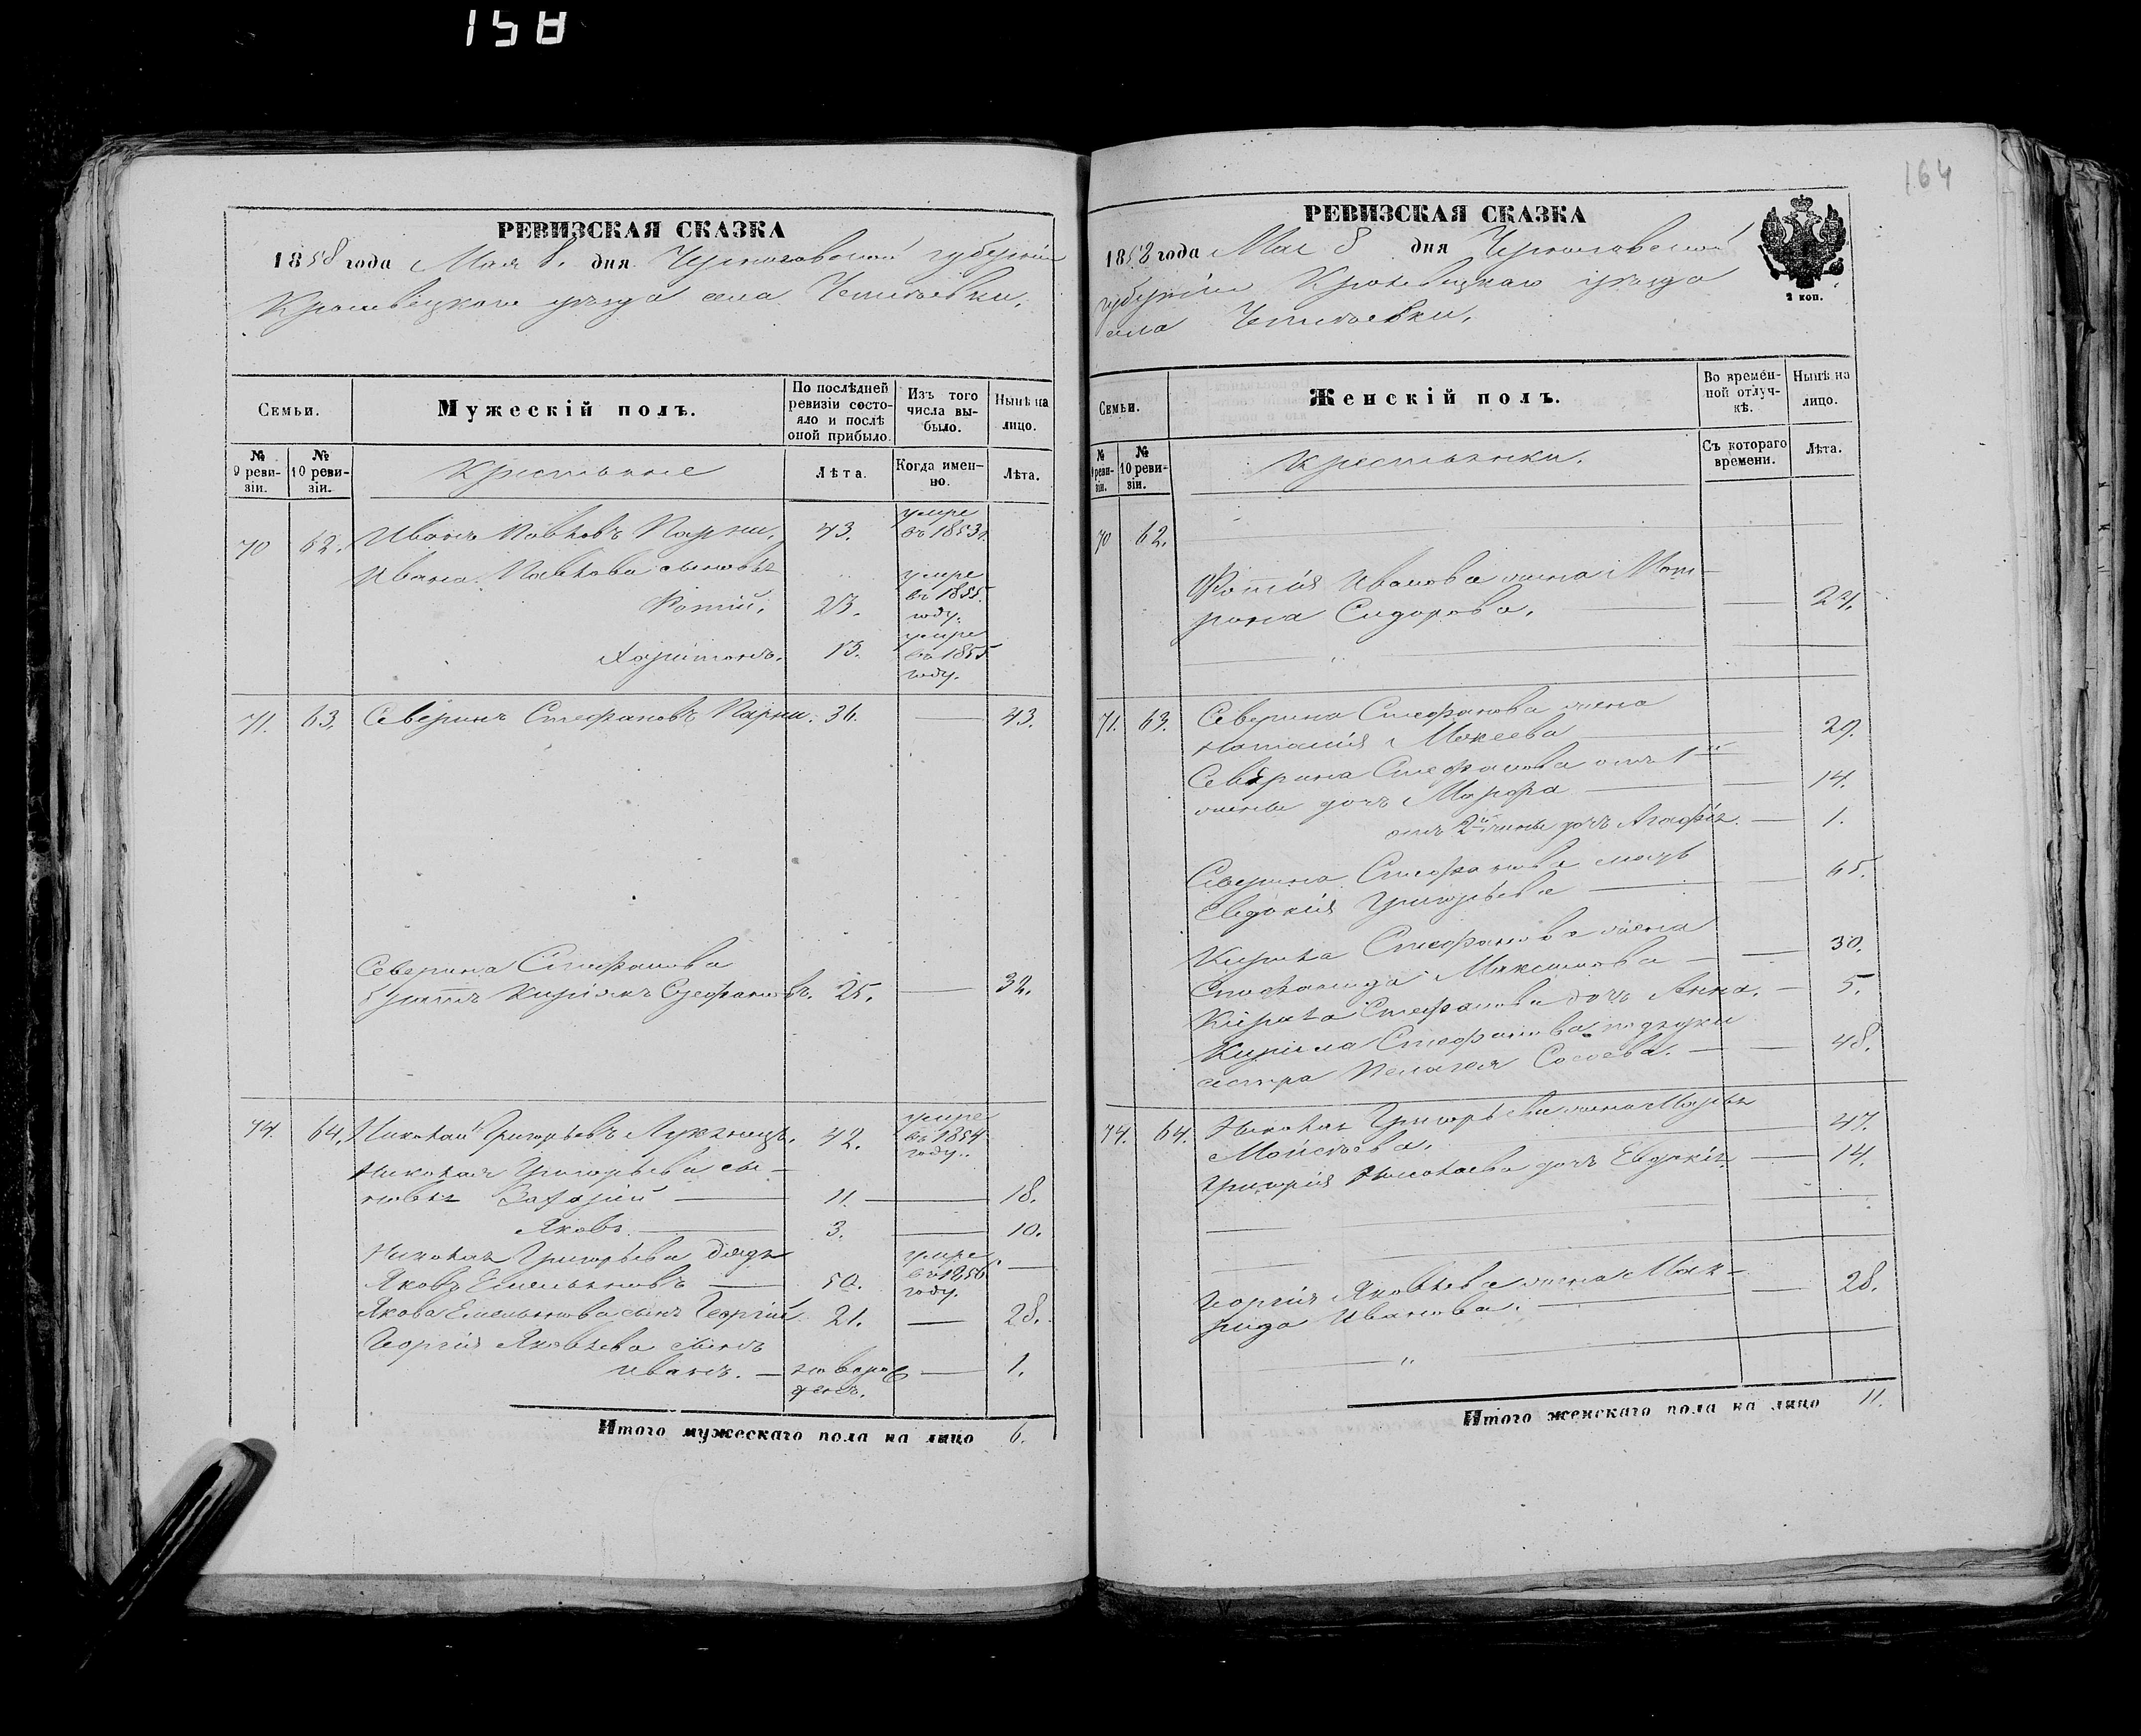 158
164
РЕВИЗСКАЯ СКАЗКА
1858 года Мая 8. дня Черниговской губерніи
Кролевецкаго уезда села
Семьи.
Мужескій полъ.
По послѣдней ревизіи состояло и послѣ оной прибыло.
Изъ того числа выбыло.
Нынѣ на лицо.
№ 9 ревизіи.
№ 10 ревизіи.
Крестьяне
Лѣта.
Когда именно.
Лѣта.
70 62. Иванъ Павловъ 43. умре въ 1853
Ивана Павлова сыновья
Фотій. 23. умре въ 1855 году.
Харитонъ. 13. умре въ 1855 году.
71. 63. Северинъ Стефановъ 36. 43.
Северина Стефанова
братъ Стефановъ. 25. 32.
74. 64. Николай Григорьевъ 42. умре въ 1854 году.
Николая Григорьева сы-
новья Захарій 11. 18.
Яковъ 3. 10.
Николая Григорьева дядя
Яковъ Емельяновъ 50. умре въ 1856 году.
Якова Емельянова сынъ Георгій 21. 28.
Георгія Яковлева сынъ
Иванъ. новорожденъ. 1.
Итого мужескаго пола на лицо 6.
РЕВИЗСКАЯ СКАЗКА
1858 года Мая 8 дня Черниговской
губерніи Кролевецкаго уезда
села
2 коп.
Семьи.
Женскій полъ.
Во временной отлучкѣ.
Нынѣ на лицо.
№ 9 ревизіи.
№ 10 ревизіи.
Крестьянки.
Съ котораго времени.
Лѣта.
70 62.
Фотія Иванова жена Мот-
рона Сидорова. 24.
71. 63. Северина Стефанова жена
Наталія Мокеева 29.
Северина Стефанова отъ 1й
жены дочь Марфа 14.
отъ 2й жены дочь Агафія. 1.
Северина Стефанова мать
Евдокія Григорьева 65.
Стефанова жена
Максимова 30.
Стефанова дочь Анна. 5.
Стефанова
сестра Пелагея 48.
74. 64. Николая Григорьева жена Марья
Моисеева. 47.
Григорія Николаева дочь Евдокія. 14.
Георгія Яковлева жена Мак-
рида Иванова. 28.
Итого женскаго пола на лицо 11.